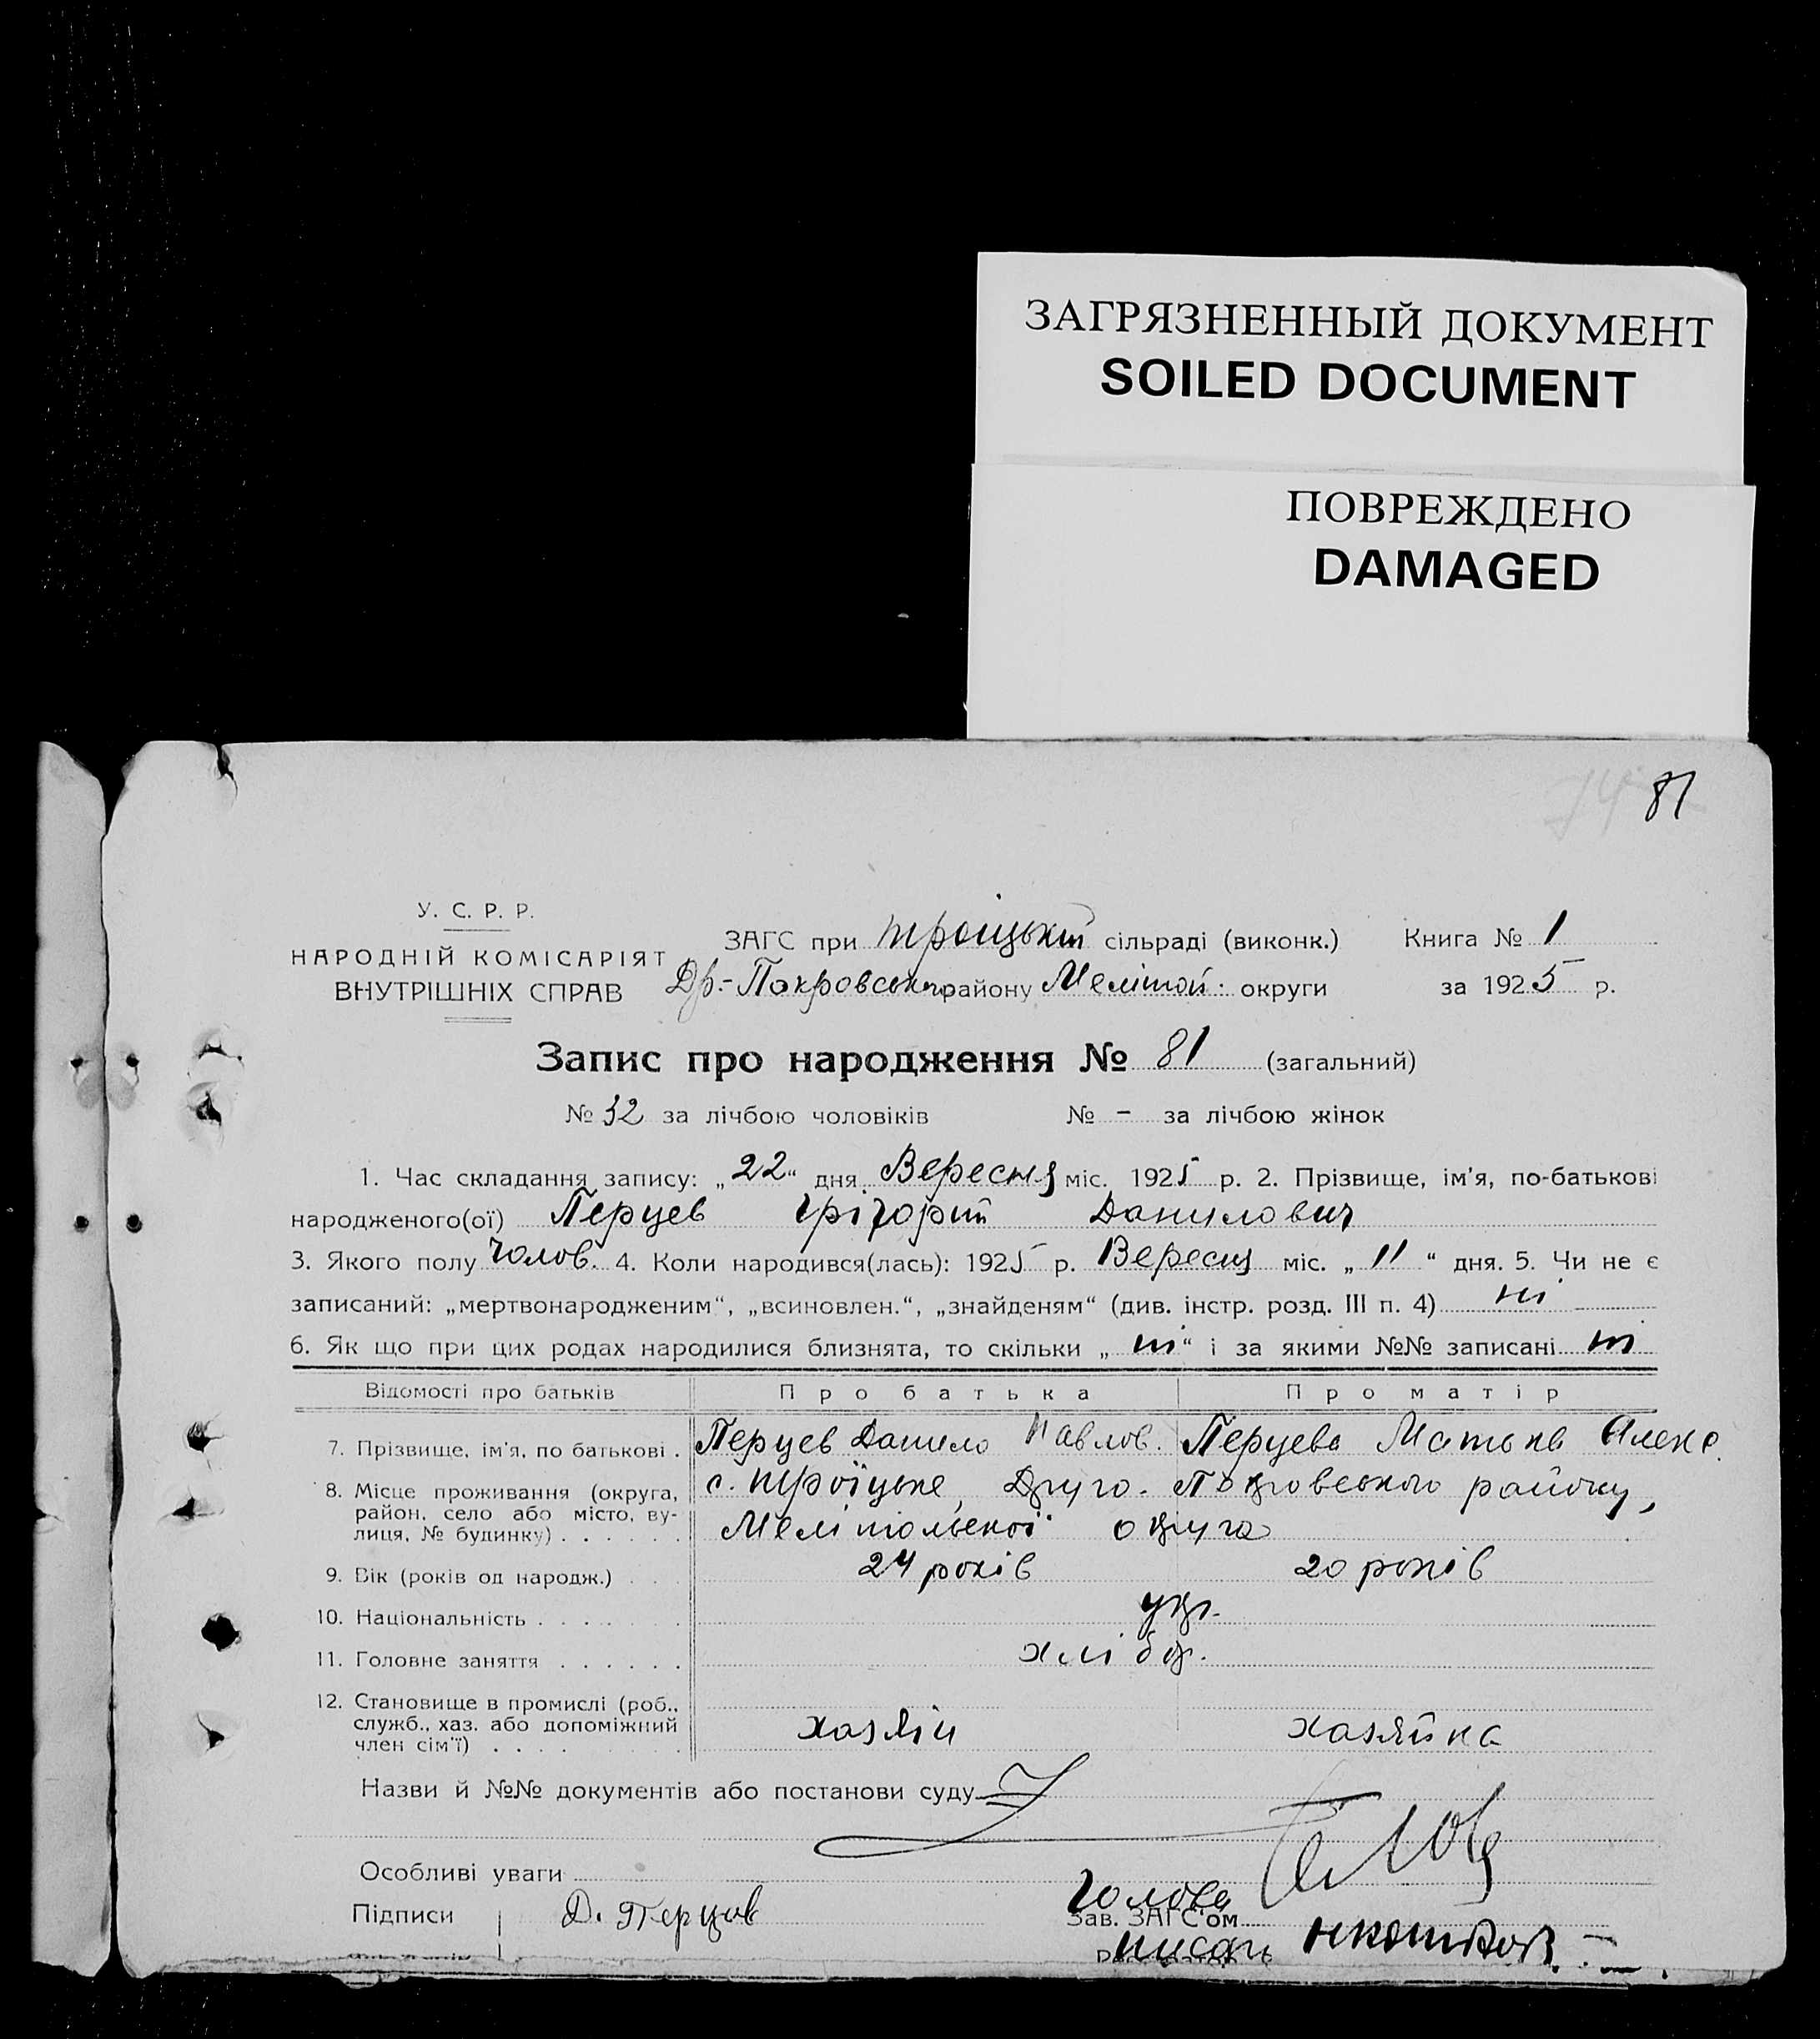 ЗАГРЯЗНЕННЫЙ ДОКУМЕНТ
SOILED DOCUMENT
ПОВРЕЖДЕНО
DAMAGED
74 81
У. С. Р. Р.
НАРОДНІЙ КОМІСАРІЯТ
ВНУТРІШНІХ СПРАВ
ЗАГС при Троіцькій сільраді (виконк.) Книга № 1
Др.-Покровського району Меліт. округи за 1925 р.
Запис про народження № 81 (загальний)
№ 32 за лічбою чоловіків № - за лічбою жінок
1. Час складання запису: „22“ дня Вересня міс. 1925 р. 2. Прізвище, ім'я, по-батькові
народженого(ої) Перцев Грігорий Данилович
3. Якого полу Чолов. 4. Коли народився(лась): 1925 р. Вересня міс. „11“ дня. 5. Чи не є
записаний: „мертвонародженим“, „всиновлен.“, „знайденям“ (див. інстр. розд. III п. 4) ні
6. Як що при цих родах народилися близнята, то скільки „ні“ і за якими №№ записані ні
Відомості про батьків Про батька Про матір
7. Прізвище, ім'я, по батькові . Перцев Данило Павлов. Перцева Алекс.
8. Місце проживання (округа, район, село або місто, вулиця, № будинку) . . . . . . с. Троїцьке, Друго-Покровського району,
Мелітопольської округа
9. Вік (років од народж.) . . . 24 років 20 років
10. Національність . . . . . . . укр.
11. Головне заняття . . . . . . хлібор.
12. Становище в промислі (роб., служб., хаз. або допоміжний член сім'ї) . . . . хазяін хазяйка
Назви й №№ документів або постанови суду
Особливі уваги
Підписи Д. Перцев Голова
Зав. ЗАГС'ом